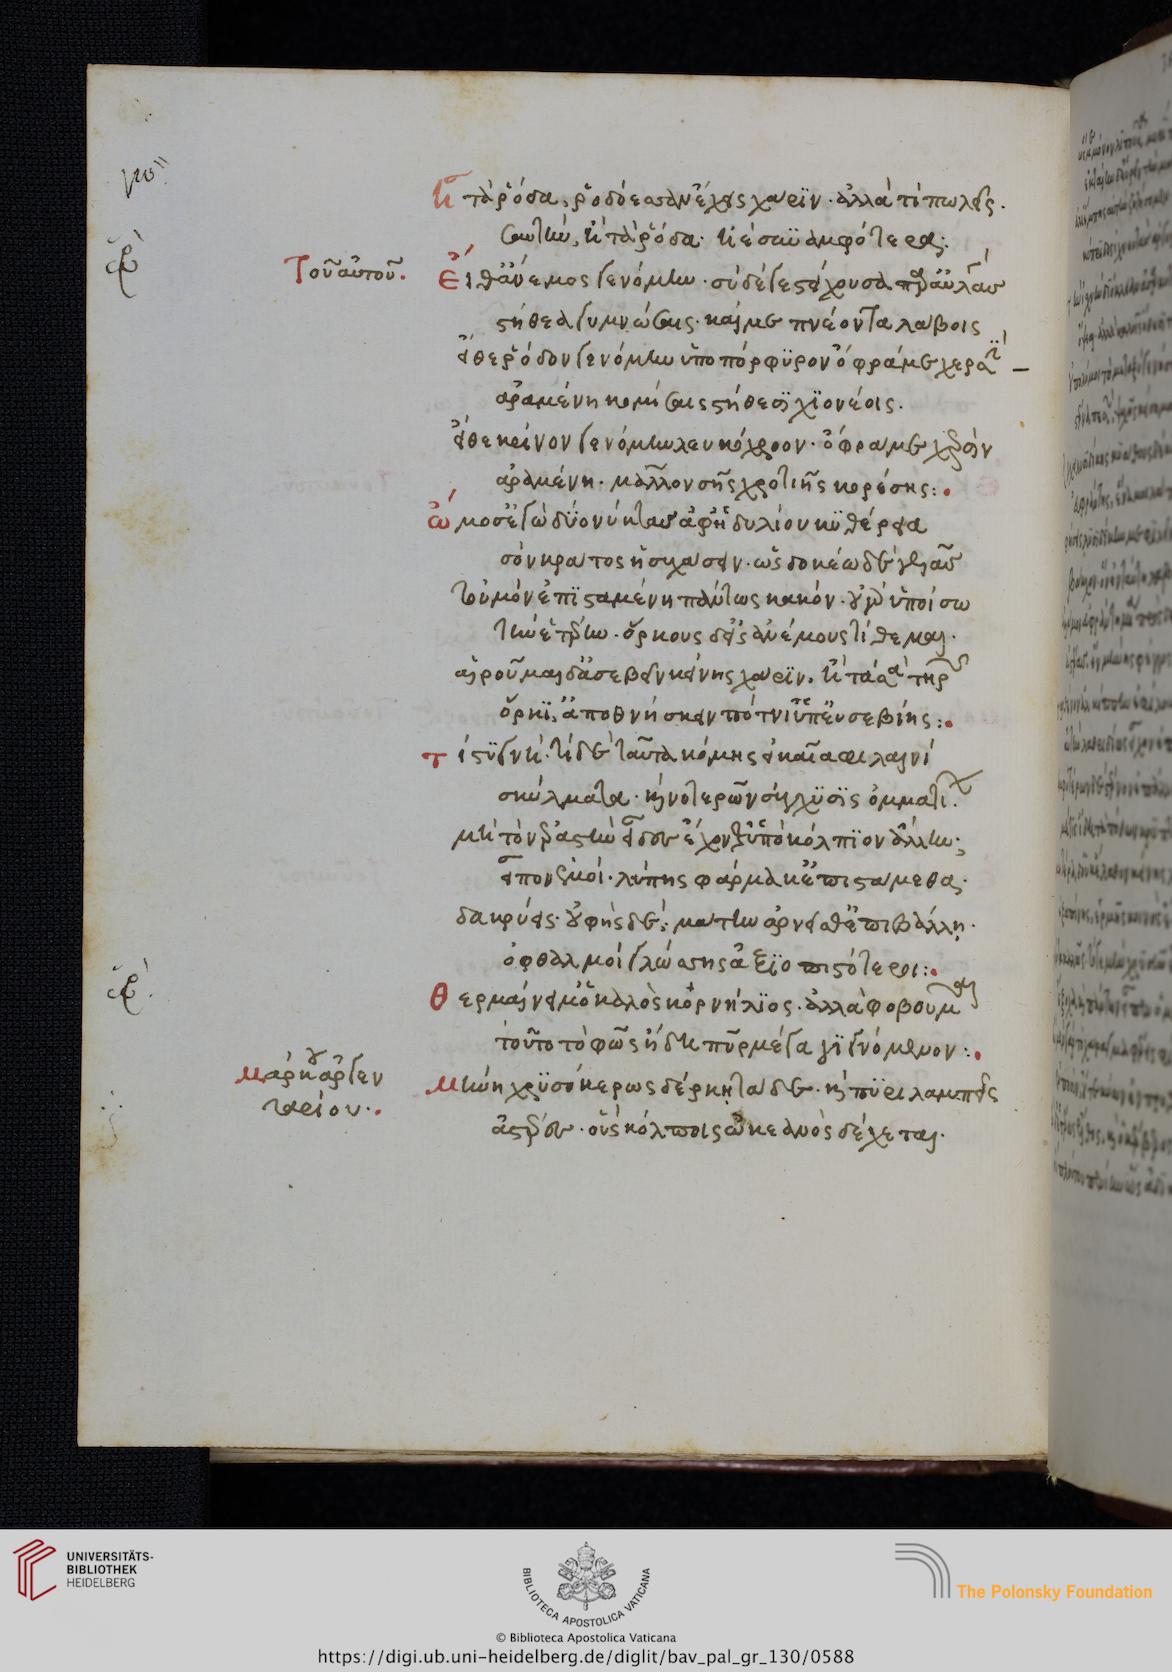 ἡ τὰ ῥόδα, ῥοδόεσσαν ἔχεις χάριν· ἀλλὰ τί πωλεῖς·
σαυτὴν, ἢ τὰ ῥόδα· ἠὲ συναμφότερα;
Τοῦ αὐτοῦ. Εἴθ' ἄνεμος γενόμην· σὺ δέ γε στείχουσα παρ' αὐγὰς
στήθεα γυμνώσαις· καί με πνέοντα λάβοις
εἴθε ῥόδον γενόμην ὑποπόρφυρον ὄφρα με χερσὶν
ἀραμένη κομίσαις στήθεσι χιονέοις.
εἴθε κρίνον γενόμην λευκόχροον· ὄφρα με χερσὶν
ἀραμένη· μᾶλλον σῆς χροτιῆς κορέσῃς:
ὤμοσ' ἐγὼ δύο νύκτας ἀφ' ἡδυλίου κυθέρεια
σὸν κράτος ἡσυχάσειν· ὡς δοκέω δὲ γελᾷς
τοὐμὸν ἐπισταμένη κακόν· οὐ γὰρ ὑποίσω
τὴν ἑτέρην· ὅρκους δ' εἰς ἀνέμους τίθεμαι·
αἱροῦμαι δ' ἀσεβεῖν κείνης χάριν. ἢ τὰ σὰ τηρῶν
ὅρκι' ἀποθνήσκειν πότνι' ὑπ' εὐσεβίης:
τί στυγνή· τί δὲ ταῦτα κόμης εἰκαῖα φιλαινὶ
σκύλματα· καὶ νοτερῶν σύγχυσις ὀμματίων.
μὴ τὸν ἐραστὴν εἶδες ἔχονθ' ὑποκόλπιον ἄλλην;
εἶπον ἐμοί· λύπης φάρμακ' ἐπιστάμεθα·
δακρύεις· οὐ φῂς δέ; μάτην ἀρνεῖσθ' ἐπιβάλλῃ·
ὀφθαλμοὶ γλώσσης ἀξιοπιστότεροι:
θερμαίνει μ' ὁ καλὸς κορνήλιος· ἀλλὰ φοβοῦμαι
τοῦτο τὸ φῶς ἤδη πῦρ μέγα γιγνόμενον:
μάρκου ἀργενταρίου. μήνη χρυσόκερως δέρκῃ τάδε· καὶ πυριλαμπεῖς
ἀστέρες· οὓς κόλποις ὠκεανὸς δέχεται·
UNIVERSITÄTS-
BIBLIOTHEK
HEIDELBERG
BIBLIOTECA APOSTOLICA VATICANA
The Polonsky Foundation
© Biblioteca Apostolica Vaticana
https://digi.ub.uni-heidelberg.de/diglit/bav_pal_gr_130/0588